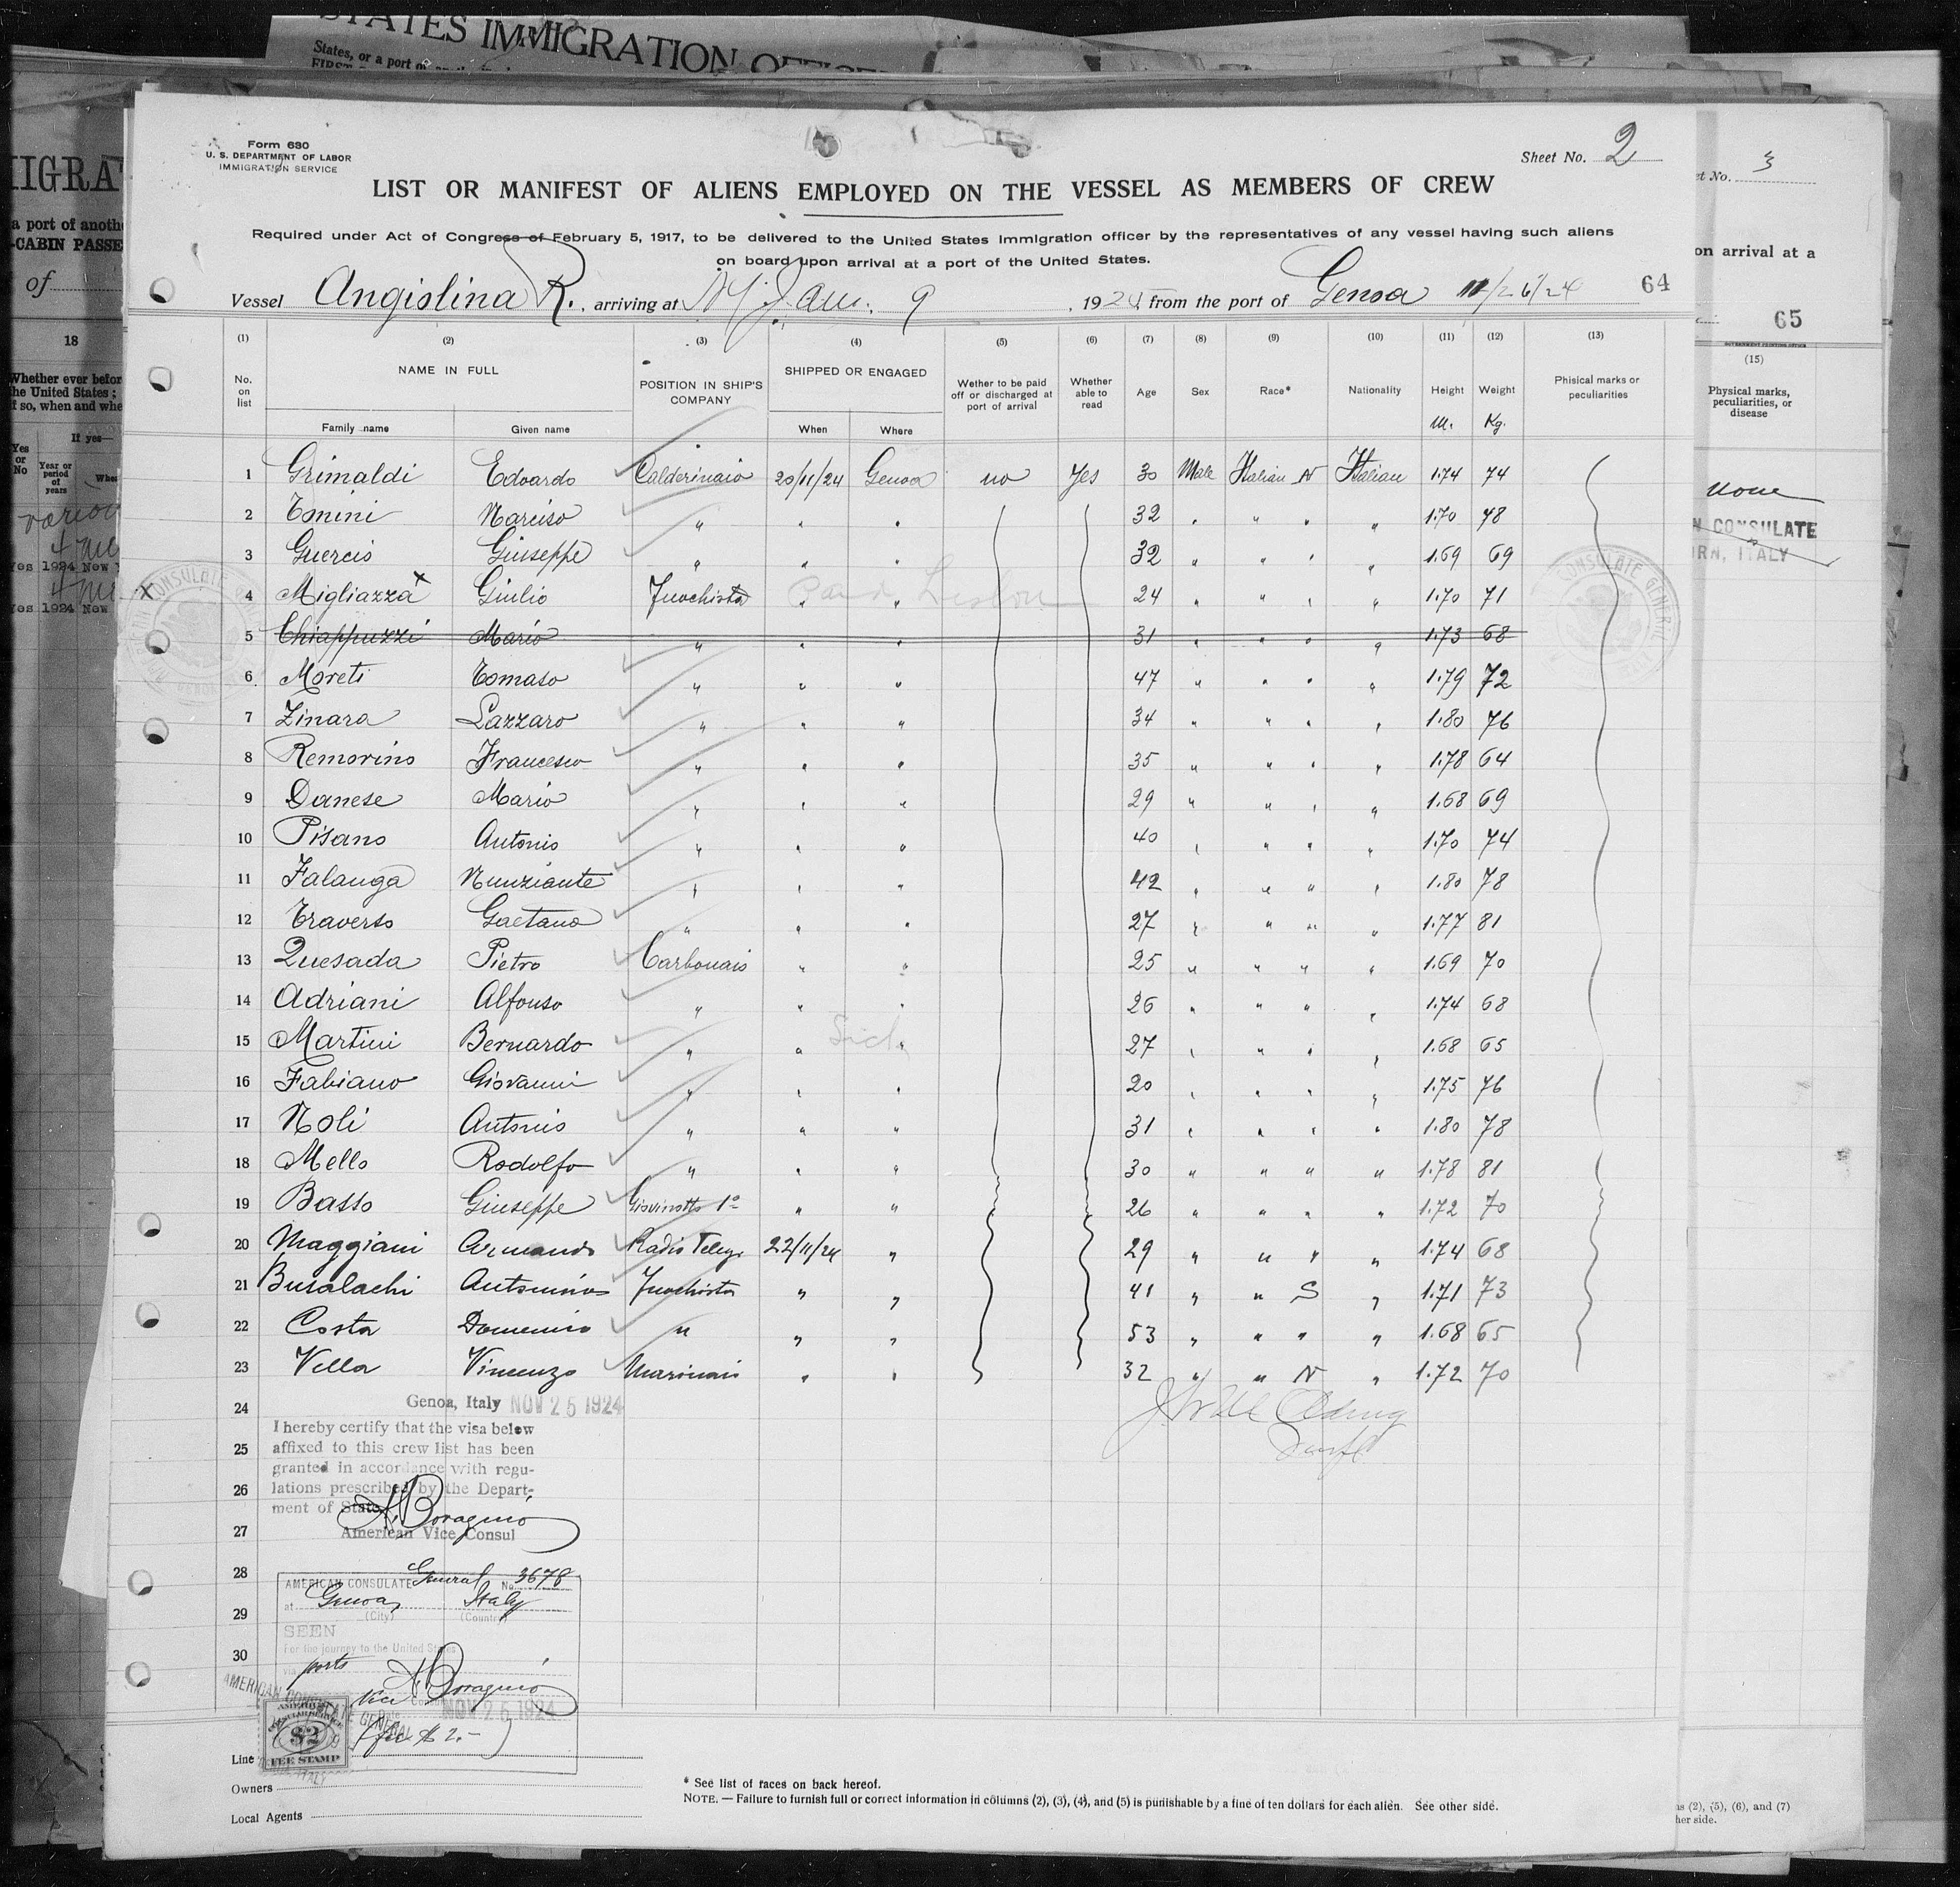 STATES IMMIGRATION OFFICE
States, or a port of
Form 680
U. S. DEPARTMENT OF LABOR
IMMIGRATION SERVICE
Sheet No. 2
LIST OR MANIFEST OF ALIENS EMPLOYED ON THE VESSEL AS MEMBERS OF CREW
Required under Act of Congress of February 5, 1917, to be delivered to the United States Immigration officer by the representatives of any vessel having such aliens
on board upon arrival at a port of the United States.
Vessel Angiolina R. , arriving at N.Y. Jan. 9 , 1925 from the port of Genoa 11/26/24 64
(1) (2) (3) (4) (5) (6) (7) (8) (9) (10) (11) (12) (13)
No. on list NAME IN FULL POSITION IN SHIP'S COMPANY SHIPPED OR ENGAGED Wether to be paid off or discharged at port of arrival Whether able to read Age Sex Race* Nationality Height Weight Phisical marks or peculiarities
Family name Given name When Where M. Kg.
1 Grimaldi Edoardo Calderinaio 20/11/24 Genoa no Yes 30 Male Italian N Italian 1.74 74
2 Tonini Narciso " " " 32 " " " " 1.70 78
3 Guercio Giuseppe " " " 32 " " " " 1.69 69
X 4 Migliazza X Giulio Fuochista " " 24 " " " " 1.70 71
5 Chiappuzzi Mario " " " 31 " " " " 1.73 68
6 Moreti Tomaso " " " 47 " " " " 1.79 72
7 Zinara Lazzaro " " " 34 " " " " 1.80 76
8 Remorino Francesco " " " 35 " " " " 1.78 64
9 Danese Mario " " " 29 " " " " 1.68 69
10 Pisano Antonio " " " 40 " " " " 1.70 74
11 Falanga Nunziante " " " 42 " " " " 1.80 78
12 Traverso Gaetano " " " 27 " " " " 1.77 81
13 Quesada Pietro Carbonaio " " 25 " " " " 1.69 70
14 Adriani Alfonso " " " 26 " " " " 1.74 68
15 Martini Bernardo " " Sick " 27 " " " " 1.68 65
16 Fabiano Giovanni " " " 20 " " " " 1.75 76
17 Noli Antonio " " " 31 " " " " 1.80 78
18 Mello Rodolfo " " " 30 " " " " 1.78 81
19 Basso Giuseppe Giovinotto 1° " " 26 " " " " 1.72 70
20 Maggiani Armando Radio Telegr 22/11/24 " 29 " " " " 1.74 68
21 Busalachi Antonino Fuochista " " 41 " " S " 1.71 73
22 Costa Domenico " " " 53 " " " " 1.68 65
23 Vella Vincenzo Marinaio " " 32 " " N " 1.72 70
24
25
26
27
28
29
30
Genoa, Italy NOV 25 1924
I hereby certify that the visa below
affixed to this crew list has been
granted in accordance with regu-
lations prescribed by the Depart-
ment of State.
A. Boragino
American Vice Consul
AMERICAN CONSULATE General No. 3678
at Genoa, Italy
(City) (Country)
SEEN
For the journey to the United States
via ports
A. Boragino
Vice Consul
Date NOV 25 1924
fee $ 2.-
AMERICAN CONSULATE GENERAL
AMERICAN
CONSULAR SERVICE
$2
FEE STAMP
Line
Owners
Local Agents
* See list of races on back hereof.
NOTE. — Failure to furnish full or correct information in columns (2), (3), (4), and (5) is punishable by a fine of ten dollars for each alien. See other side.
IGRA
a port of anoth
-CABIN PASSE
of
18
Whether ever befor
the United States;
if so, when and whe
If yes—
Yes or No
Year or period of years
Yes 1924 New
Yes 1924 New
et No. 3
on arrival at a
65
(15)
Physical marks, peculiarities, or disease
None
N CONSULATE
RN, ITALY
ns (2), (5), (6), and (7)
her side.